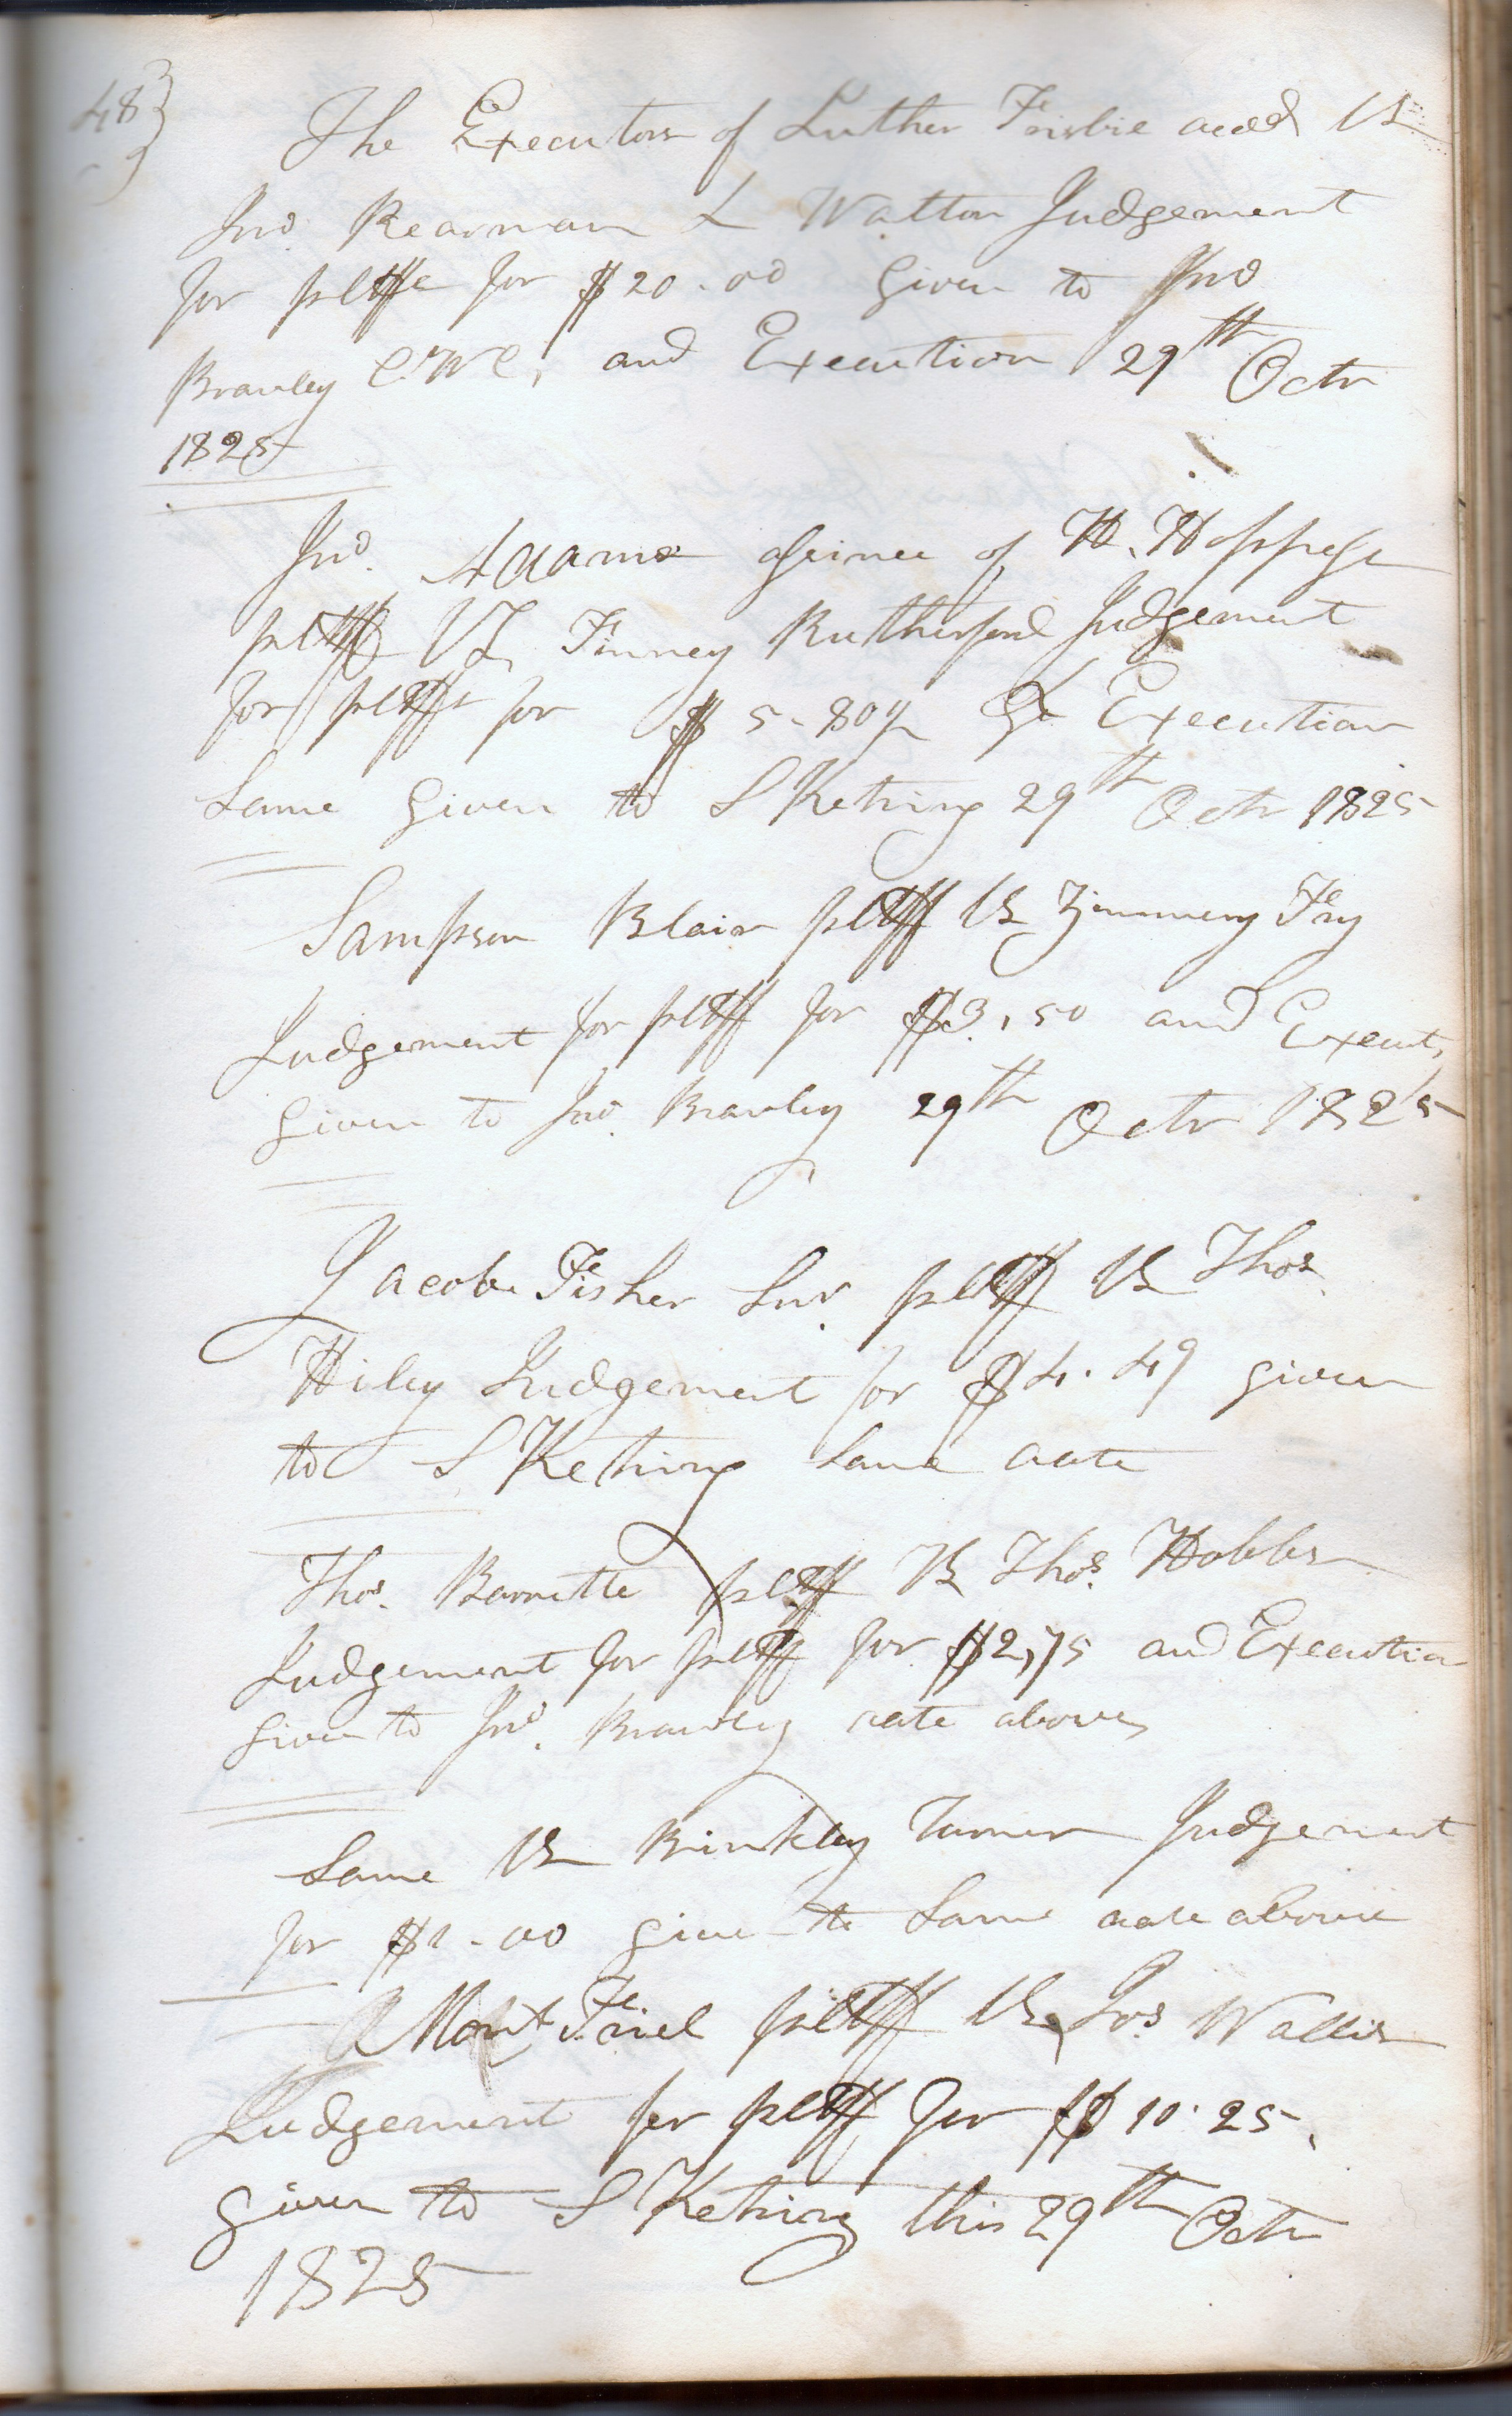 48}
The Executors of Luther Frisbie decd VS
Jno. Rearman & Watton Judgement
for pltffe for $20.00 Given to Jno
Brawley and Execution 29th Octr
1825
Jno. Adams of H. Hoppess
pltff VS Finney Rutherford Judgement
for pltffs for $5-80½ & Execution
Same Given to S Ketring 29th Octr 1825
Sampson Blair pltff VS Zimmery Fry
Judgement for pltff for $3,50 and Execut,
Given to Jno. Brawley 29th Octr 1825
Jacob Fisher Snr. pltff VS Thos.
Hiley Judgement for $4.49 given
to S Ketring Same date
Thos. Barnette pltff VS Thos. Hobbs
Judgement for pltff for $2,75 and Execution
Given to Jno. Brawley date above
Same VS Brinkley Turner Judgement
for $1-00 given to Same date above
Mont Friel pltff VS Jos Wallis
Judgement for pltff for $10.25,
given to S Ketring this 29th Octr
1825